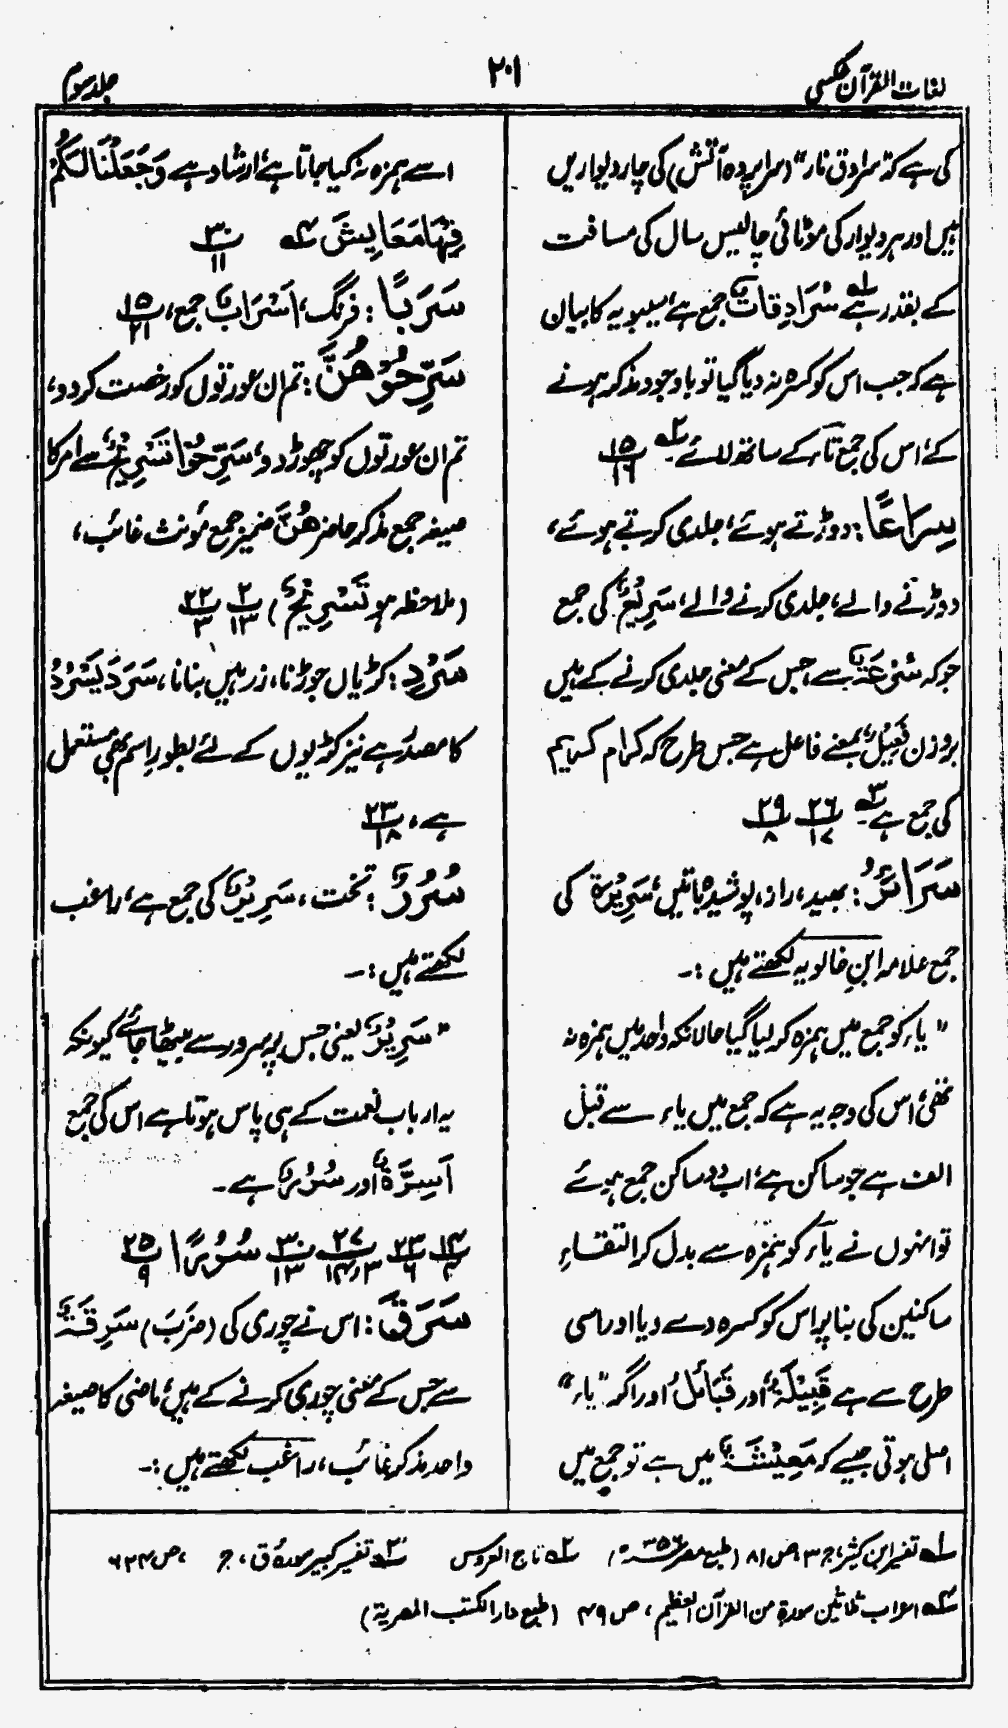 لغات القرآن عکسی
۲۰۱
جلد سوم
کی ہے کہ "سرادق نار" (سراپردہ آتش) کی چار دیواریں
ہیں اور ہر دیوار کی موٹائی چالیس سال کی مسافت
کے بقدر ہے ۱ سُرَادِقَاتٌ جمع ہے، سیبویہ کا بیان
ہے کہ جب اس کو کسرہ نہ دیا گیا تو باوجود مذکر ہونے
کے، اس کی جمع تاء کے ساتھ لائے ۲ ۱۵/۱۶
سِرَاعًا: دوڑتے ہوئے، جلدی کرتے ہوئے،
دوڑنے والے، جلدی کرنے والے، سَرِیْعٌ کی جمع
جو کہ سُرْعَةٌ سے، جس کے معنی جلدی کرنے کے ہیں
بروزن فَعِیْلٌ بمعنے فاعل ہے جس طرح کہ کرام کریم
کی جمع ہے ۳ ۲۶/۱۷ ۲۹/۸
سَرَائِرُ: بھید، راز، پوشیدہ باتیں، سَرِیْرَةٌ کی
جمع علامہ ابنِ خالویہ لکھتے ہیں:۔
"یاء کو جمع میں ہمزہ کر لیا گیا حالانکہ واحد میں ہمزہ نہ
تھی، اس کی وجہ یہ ہے کہ جمع میں یاء سے قبل
الف ہے جو ساکن ہے، اب دو ساکن جمع ہوئے
تو انہوں نے یاء کو ہمزہ سے بدل کر التقاءِ
ساکنین کی بنا پر اس کو کسرہ دے دیا اور اسی
طرح سے ہے قَبِیْلَةٌ، اور قَبَائِلُ اور اگر "یاء"
اصلی ہوتی جیسے کہ مَعِیْشَةٌ میں ہے تو جمع میں
اسے ہمزہ نہ کیا جاتا ہے، ارشاد ہے وَجَعَلْنَا لَکُمْ
فِیْهَا مَعَایِشَ ۴ ۳۰/۱۱
سَرَبًا: فرنگ، اَسْرَابٌ جمع، ۱۵/۲۱
سَرِّحُوْهُنَّ: تم ان عورتوں کو رخصت کر دو،
تم ان عورتوں کو چھوڑ دو، سَرِّحُوْا تَسْرِیْحٌ سے امر کا
صیغہ جمع مذکر حاضر هُنَّ ضمیر جمع مؤنث غائب،
(ملاحظہ ہو تَسْرِیْحٌ) ۲/۱۳ ۲۲/۳
سَرْدِ: کڑیاں جوڑنا، زرہیں بنانا، سَرَدَ یَسْرُدُ
کا مصدر ہے نیز کڑیوں کے لئے بطورِ اسم بھی مستعمل
ہے، ۲۳/۱۸
سُرُرٌ: تخت، سَرِیْرٌ کی جمع ہے، راغب
لکھتے ہیں:۔
"سَرِیْرٌ یعنی جس پر سرور سے بیٹھا جائے کیونکہ
یہ ارباب نعمت کے ہی پاس ہوتا ہے اس کی جمع
اَسِرَّةٌ اور سُرُرٌ ہے۔
۱۴/۴ ۲۳/۶ ۲۷/۳،۱۴ ۳۰/۱۳ سُرُرًا ۲۵/۹
سَرَقَ: اس نے چوری کی (ضَرَبَ) سَرِقَةٌ
سے جس کے معنی چوری کرنے کے ہیں، ماضی کا صیغہ
واحد مذکر غائب، راغب لکھتے ہیں:۔
۱ تفسیر ابن کثیر، ج ۳، ص ۸۱ (طبع مصر ۱۳۵۶ھ) ۲ تاج العروس ۳ تفسیر کبیر سورۂ ق، ج ، ص ۶۲۴
۴ اعراب ثلاثین سورة من القرآن العظیم، ص ۴۹ (طبع دار الکتب المصریة)